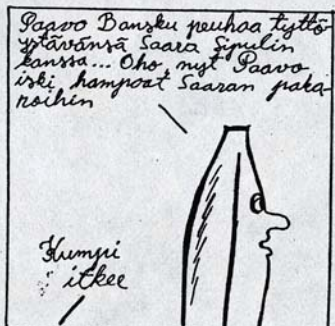 Paavo Bansku peuhaa tyttö-
ystävänsä Saara Sipulin
kanssa... Oho nyt Paavo
iski hampaat Saaran paka-
roihin
Kumpi
itkee